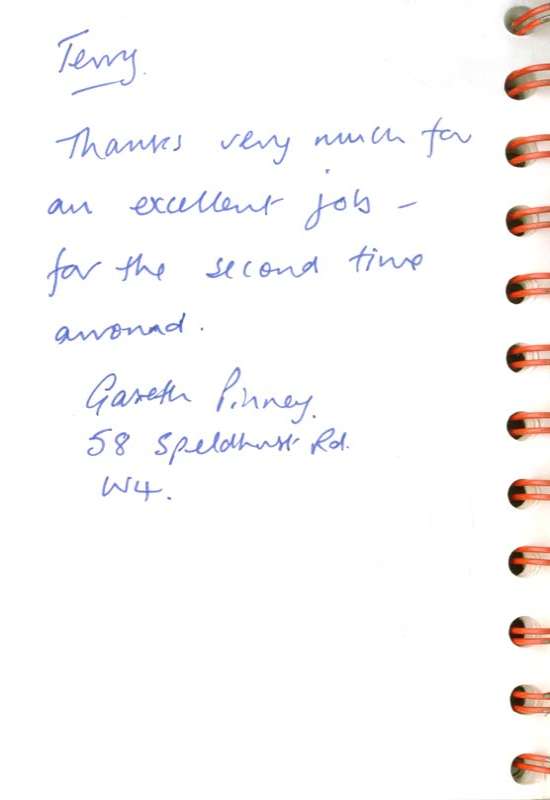 Terry.
Thanks very much for
an excellent job –
for the second time
around.
Gareth Pinney.
58 Speldhurst Rd.
W4.